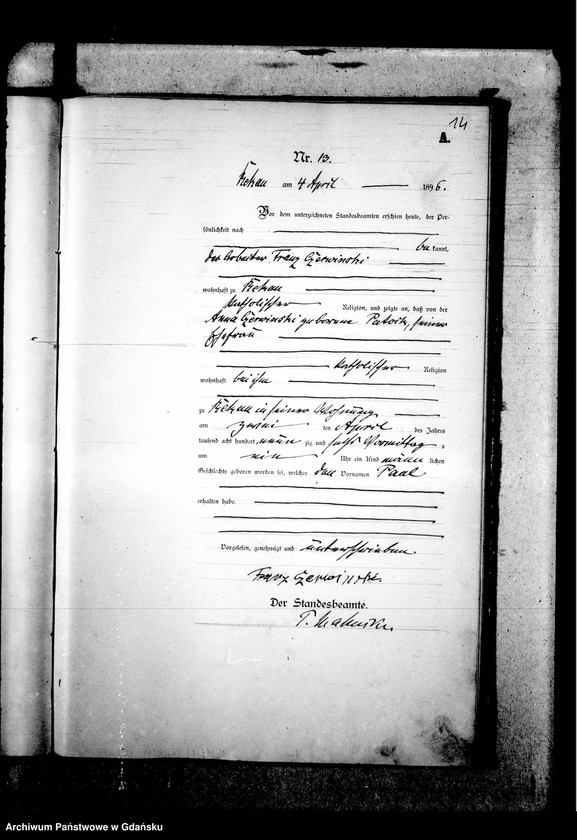 14
A.
Nr. 13.
am 4 April 1896.
Vor dem unterzeichneten Standesbeamten erschien heute, der Per-
sönlichkeit nach
bekannt,
der Arbeiter Franz Czerwinski
wohnhaft zu
katholischer Religion, und zeigte an, daß von der
Anna Czerwinski geborene seiner
Ehefrau
katholischer Religion
wohnhaft bei ihm
zu in seiner Wohnung
am zwei ten April des Jahres
tausend acht hundert neun zig und sechs Vormittag s
um ein Uhr ein Kind männlichen
Geschlechts geboren worden sei, welches den Vornamen Paul
erhalten habe.
Vorgelesen, genehmigt und unterschrieben
Franz Czerwinski.
Der Standesbeamte.
Archiwum Państwowe w Gdańsku